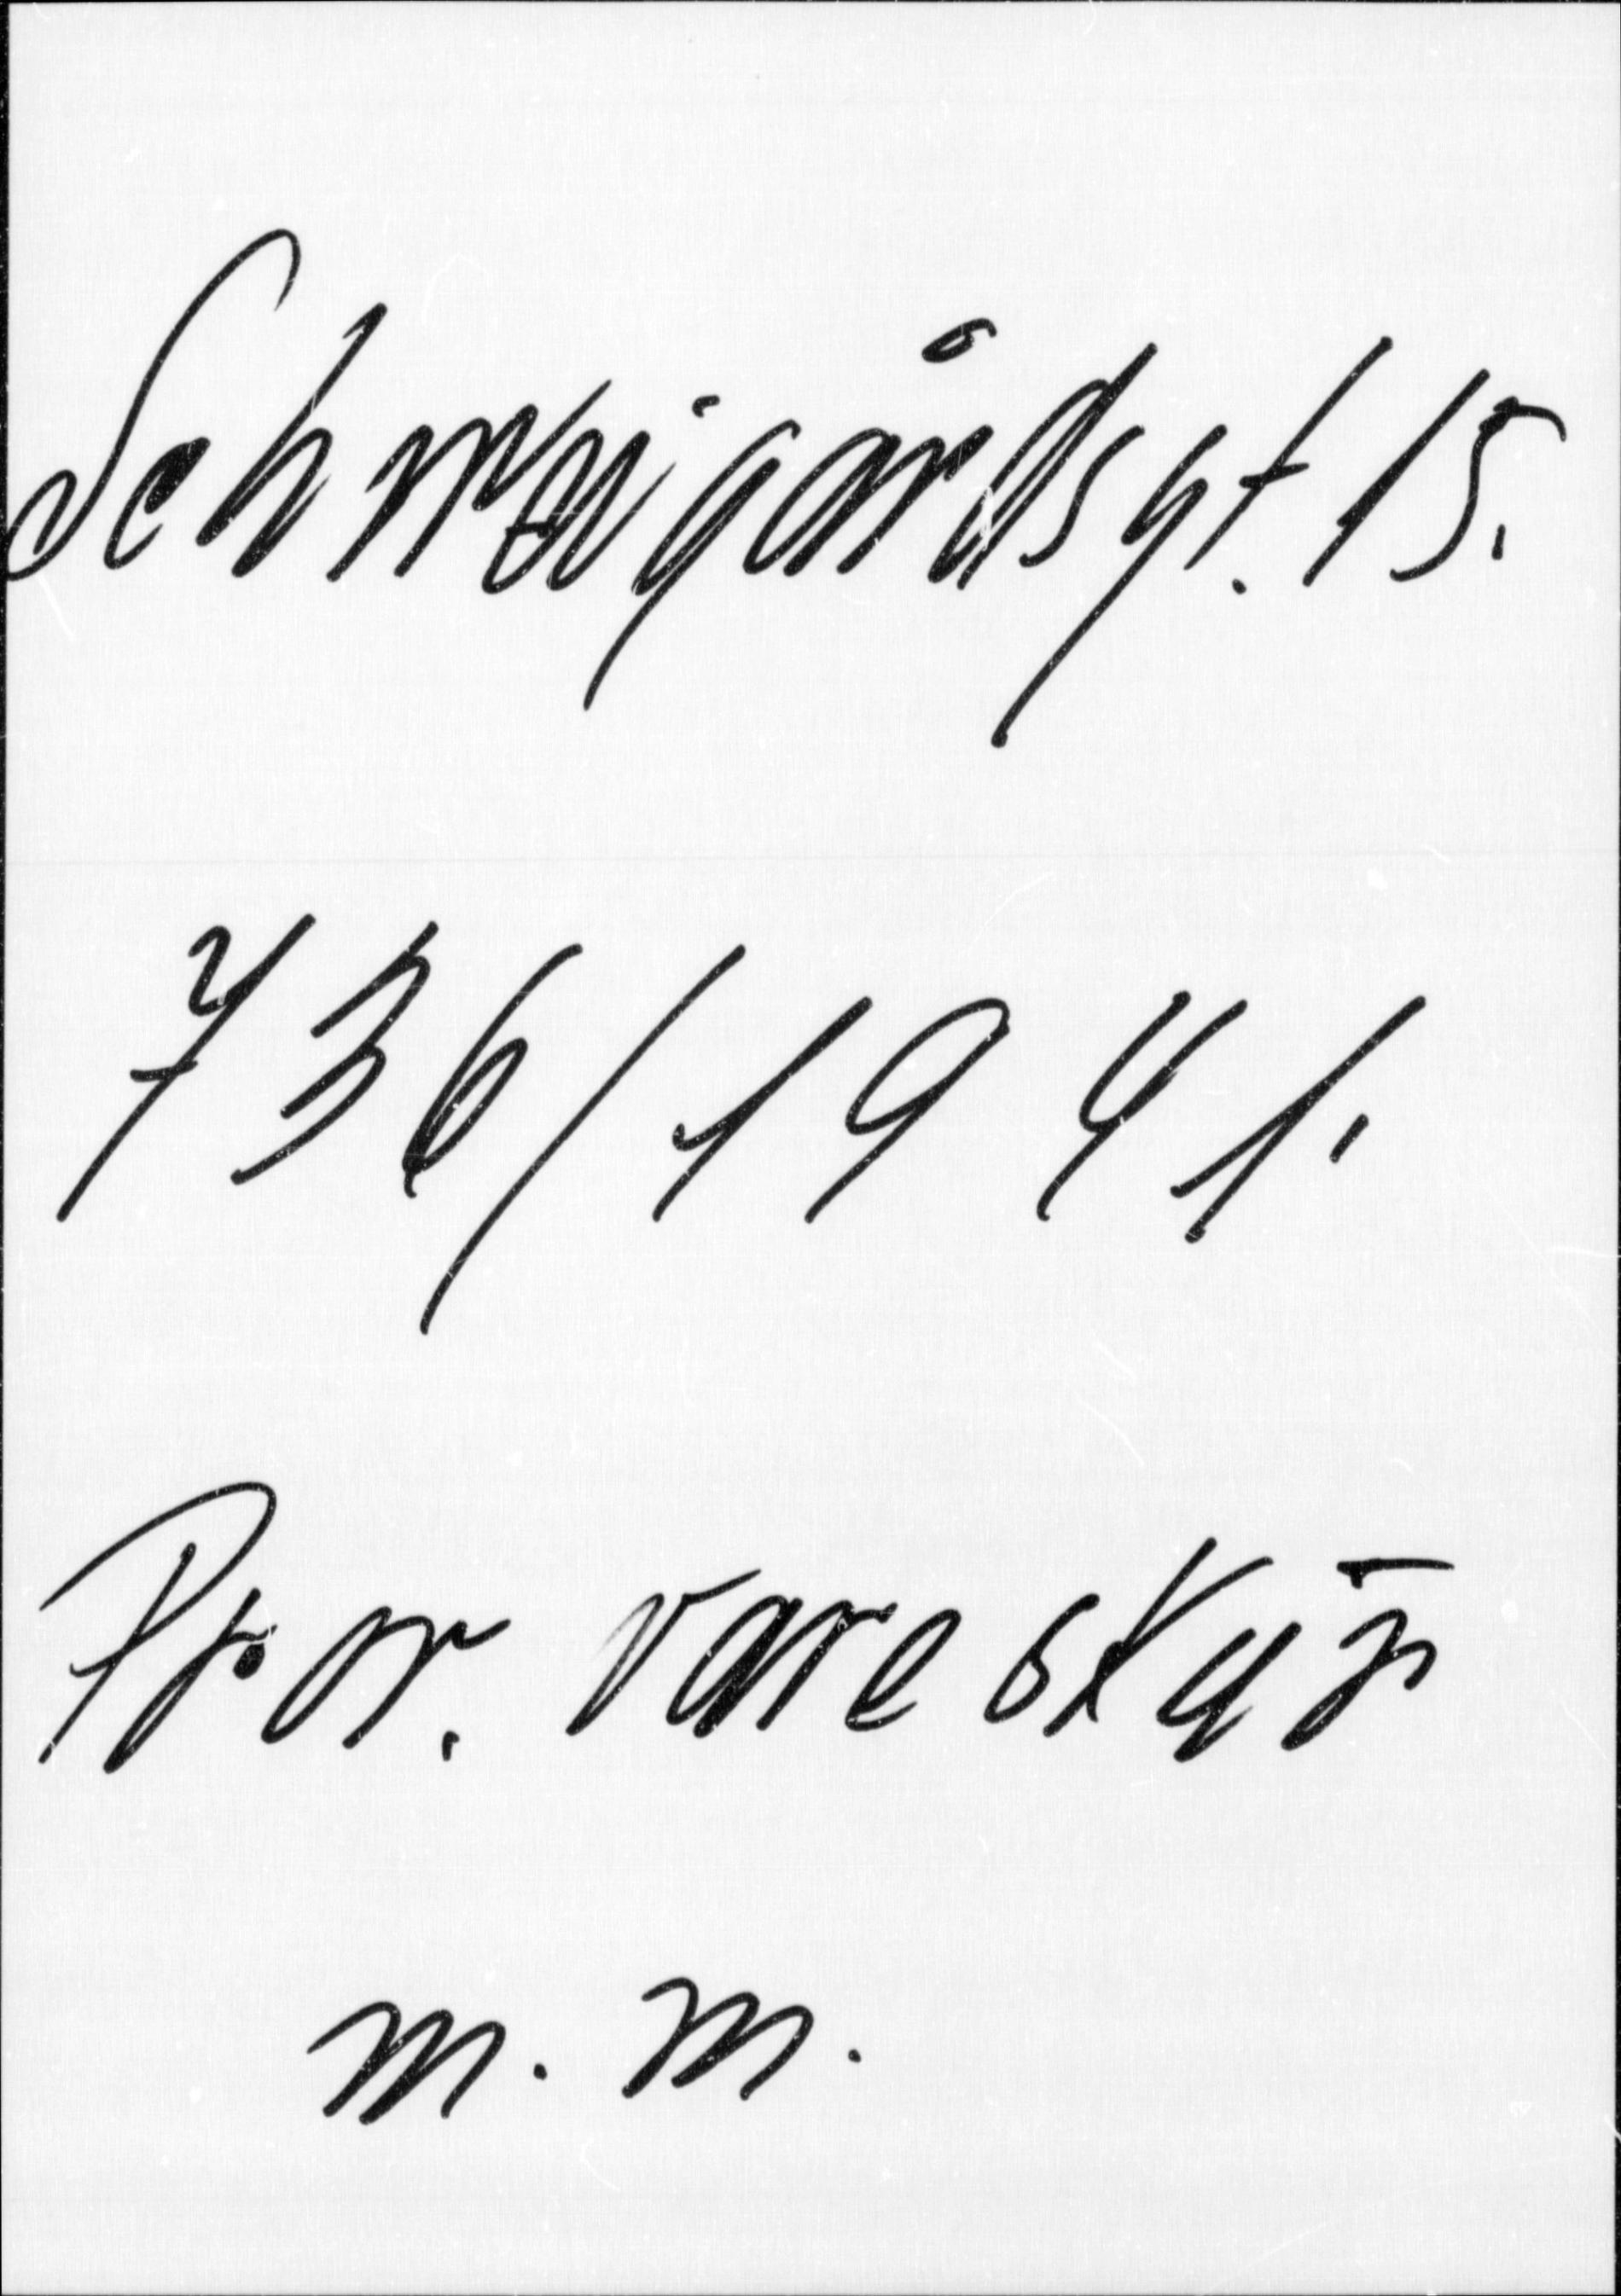 Schweigårdsgt. 15.
736/1941.
Prov. vareskur
m. m.